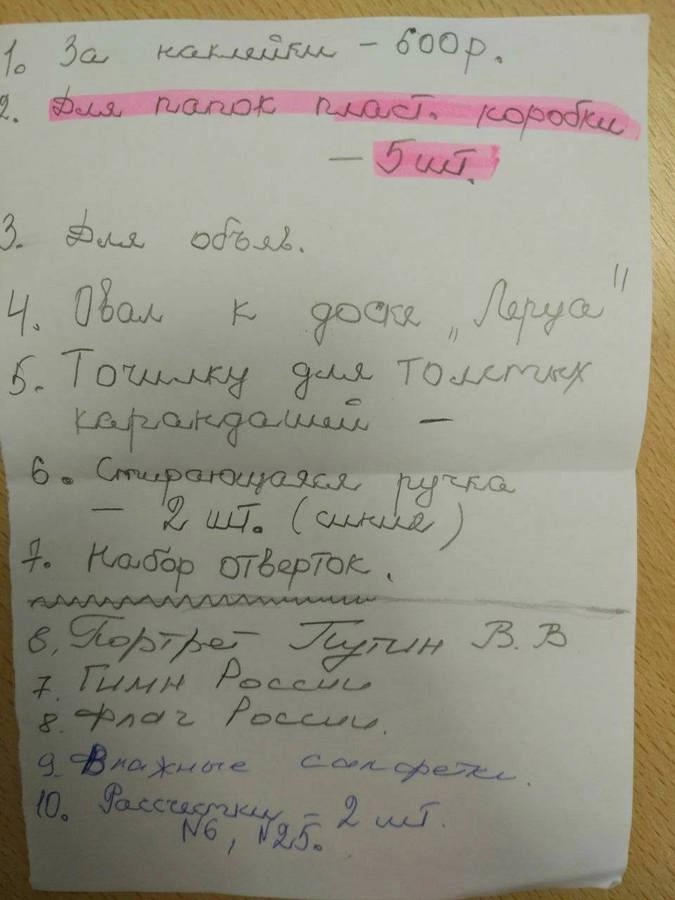 1. За наклейки – 600р.
2. Для папок пласт. коробки
– 5 шт.
3. Для объяв.
4. Овал к доске „Леруа"
5. Точилку для толстых
карандашей –
6. Стирающаяся ручка
– 2 шт. (синие)
7. Набор отверток.
6. Портрет Путин В. В
7. Гимн России
8. Флаг России.
9. Влажные салфетки.
10. Рассчестки – 2 шт.
N6, N25.